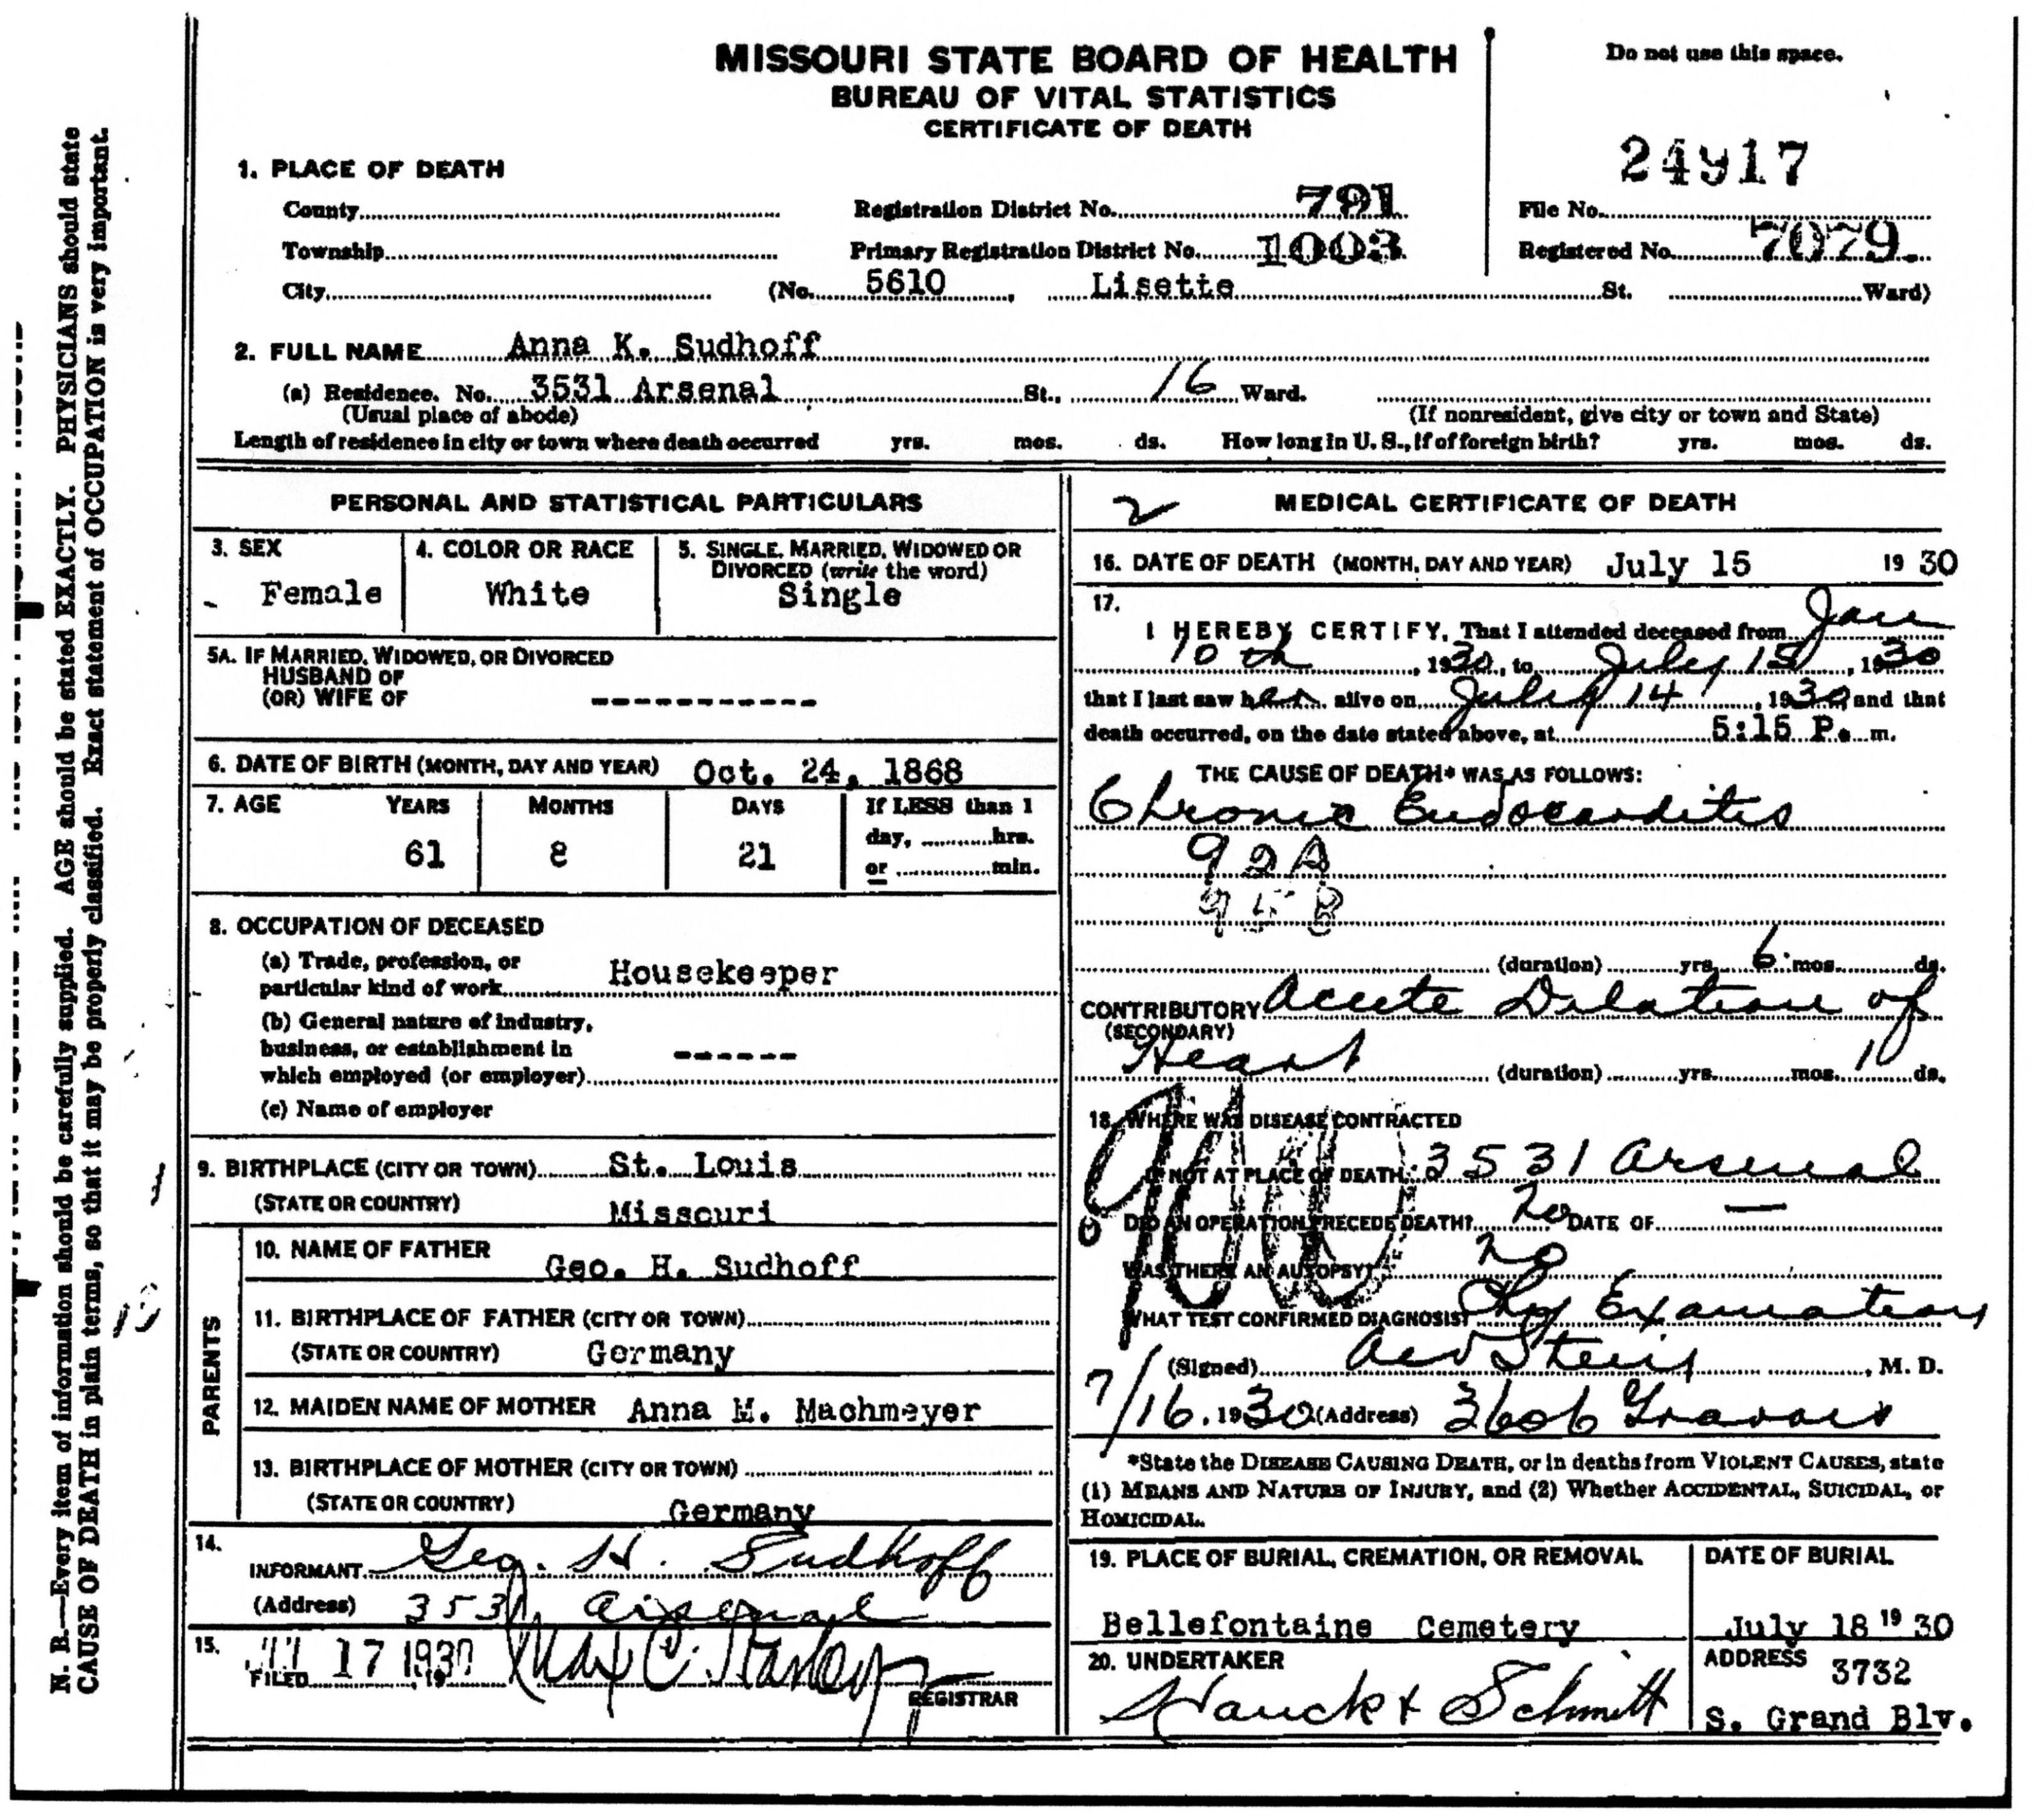 MISSOURI STATE BOARD OF HEALTH
BUREAU OF VITAL STATISTICS
CERTIFICATE OF DEATH
Do not use this space.
24917
1. PLACE OF DEATH
County
Registration District No. 791
File No.
Township
Primary Registration District No. 1003
Registered No. 7079.
City (No. 5610, Lisette St. Ward)
2. FULL NAME Anna K. Sudhoff
(a) Residence. No. 3531 Arsenal St., 16 Ward.
(Usual place of abode) (If nonresident, give city or town and State)
Length of residence in city or town where death occurred yrs. mos. ds. How long in U. S., if of foreign birth? yrs. mos. ds.
PERSONAL AND STATISTICAL PARTICULARS
3. SEX
Female
4. COLOR OR RACE
White
5. SINGLE, MARRIED, WIDOWED OR
DIVORCED (write the word)
Single
5A. IF MARRIED, WIDOWED, OR DIVORCED
HUSBAND OF
(OR) WIFE OF -----------
6. DATE OF BIRTH (MONTH, DAY AND YEAR) Oct. 24, 1868
7. AGE YEARS MONTHS DAYS If LESS than 1
day, hrs.
61 8 21
or min.
8. OCCUPATION OF DECEASED
(a) Trade, profession, or
particular kind of work Housekeeper
(b) General nature of industry,
business, or establishment in
which employed (or employer) ------
(c) Name of employer
9. BIRTHPLACE (CITY OR TOWN) St. Louis
(STATE OR COUNTRY) Missouri
PARENTS
10. NAME OF FATHER Geo. H. Sudhoff
11. BIRTHPLACE OF FATHER (CITY OR TOWN)
(STATE OR COUNTRY) Germany
12. MAIDEN NAME OF MOTHER Anna M. Machmeyer
13. BIRTHPLACE OF MOTHER (CITY OR TOWN)
(STATE OR COUNTRY) Germany
14.
INFORMANT Geo. H. Sudhoff
(Address) 3531 Arsenal
15.
FILED JUL 17 1930, 19 Max C. Starkloff
REGISTRAR
2 MEDICAL CERTIFICATE OF DEATH
16. DATE OF DEATH (MONTH, DAY AND YEAR) July 15 1930
17.
I HEREBY CERTIFY, That I attended deceased from Jan
10th, 1930, to July 15, 1930
that I last saw her alive on July 14, 1930, and that
death occurred, on the date stated above, at 5:15 P. m.
THE CAUSE OF DEATH* WAS AS FOLLOWS:
Chronic Endocarditis
92A
95B
(duration) yrs. 6 mos. ds.
CONTRIBUTORY Acute Dilation of
(SECONDARY)
Heart (duration) yrs. mos. 10 ds.
18. WHERE WAS DISEASE CONTRACTED
IF NOT AT PLACE OF DEATH? 3531 Arsenal
DID AN OPERATION PRECEDE DEATH? no DATE OF —
WAS THERE AN AUTOPSY? no
WHAT TEST CONFIRMED DIAGNOSIS? Phy Examination
(Signed) , M. D.
7/16, 1930 (Address) 3606 Gravois
*State the DISEASE CAUSING DEATH, or in deaths from VIOLENT CAUSES, state
(1) MEANS AND NATURE OF INJURY, and (2) Whether ACCIDENTAL, SUICIDAL, or
HOMICIDAL.
19. PLACE OF BURIAL, CREMATION, OR REMOVAL
Bellefontaine Cemetery
DATE OF BURIAL
July 18 1930
20. UNDERTAKER
Hauck & Schmitt
ADDRESS 3732
S. Grand Blv.
N. B.—Every item of information should be carefully supplied. AGE should be stated EXACTLY. PHYSICIANS should state
CAUSE OF DEATH in plain terms, so that it may be properly classified. Exact statement of OCCUPATION is very important.